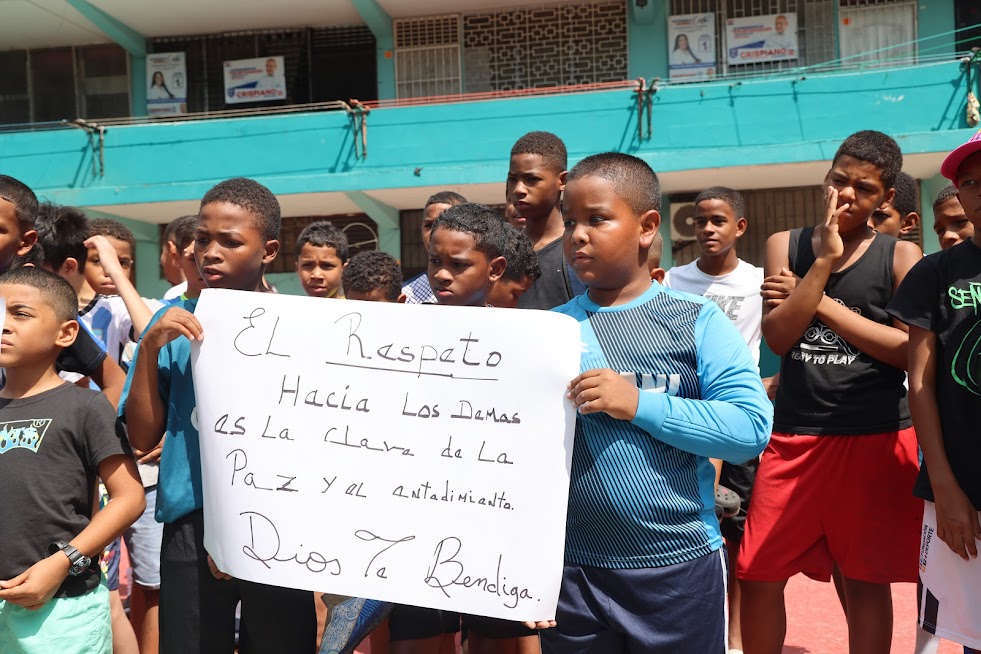 CRISPIANO
CRISPIANO
EL Respeto
Hacia Los Demas
es La clave de La
Paz y el entedimiento.
Dios Te Bendiga
TO PLAY
SEN